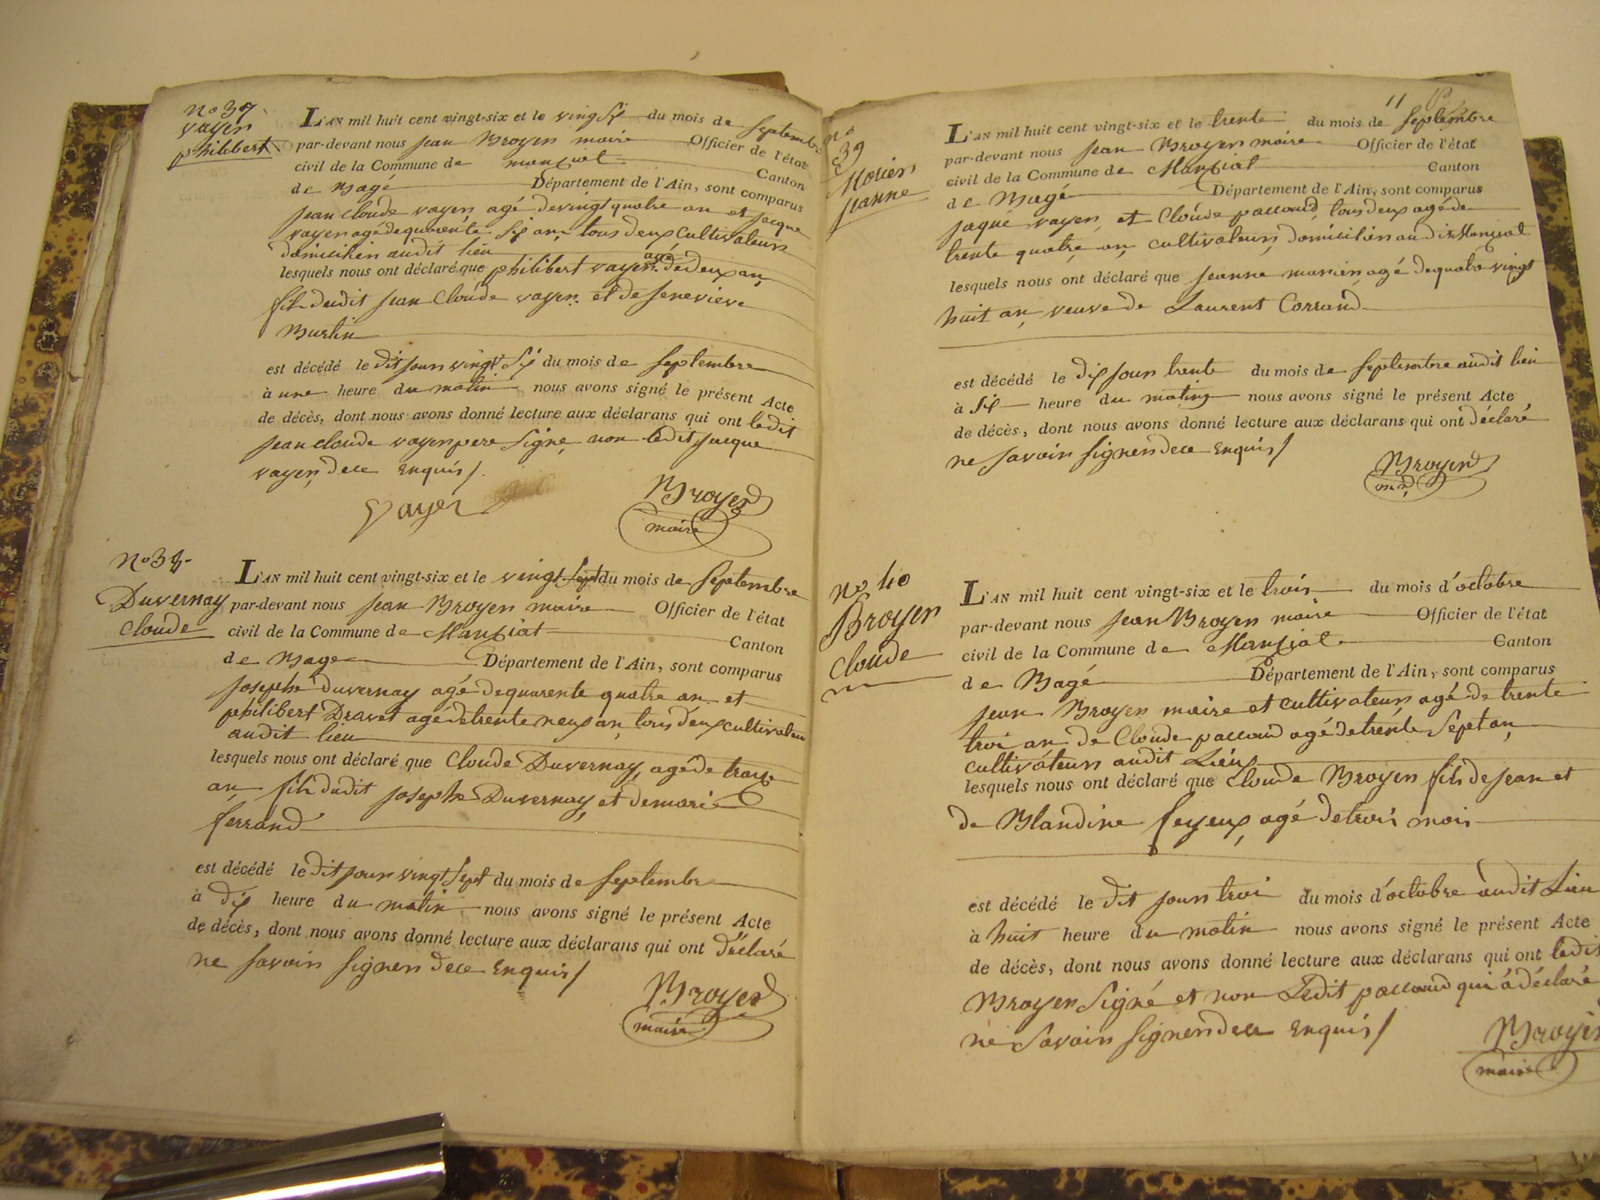 No 37
Vayer
philibert
L'AN mil huit cent vingt-six et le vingt Six du mois de Septembre
par-devant nous Jean Broyer maire Officier de l'état
civil de la Commune de manziat Canton
de Bagé Département de l'Ain, sont comparus
Jean Cloude vayer agé devingt quatre an et Jacque
vayer agé dequarente Six an, tous deux Cultivateurs
domiciliés audit lieu
lesquels nous ont déclaré que philibert vayer agé de deux an,
fils dudit Jean Cloude vayer et de Jenevieve
Burtin
est décédé le dit jour vingt Six du mois de Septembre
à une heure du matin nous avons signé le présent Acte
de décès, dont nous avons donné lecture aux déclarans qui ont ledit
Jean cloude vayer pere Signe, non ledit Jacque
vayer, dece Enquis /.
Vayer
Broyer
maire
No 38
Duvernay
Cloude
L'AN mil huit cent vingt-six et le vingt Sept du mois de Septembre
par-devant nous Jean Broyer maire Officier de l'état
civil de la Commune de Manziat Canton
de Bage Département de l'Ain, sont comparus
Josephe Duvernay agé dequarente quatre an et
philibert Dravet agé detrente neuf an, tous deux cultivateu
audit lieu
lesquels nous ont déclaré que Cloude Duvernay, agé de traize
an, fils dudit Josephe Duvernay, et demarie
ferrand
est décédé le dit jour vingt Sept du mois de Septembre
à dix heure du matin nous avons signé le présent Acte
de décès, dont nous avons donné lecture aux déclarans qui ont déclaré
ne Savoir Signer dece Enquis /
Broyer
maire
11
no 39
Morier
Jeanne
L'AN mil huit cent vingt-six et le trente du mois de Septembre
par-devant nous Jean Broyer maire Officier de l'état
civil de la Commune de Manziat Canton
de Bagé Département de l'Ain, sont comparus
Jaque vayer, et Cloude paccaud, tous deux agé de
trente quatre an, cultivateurs, domiciliés audit Manziat
lesquels nous ont déclaré que Jeanne morier agé dequatre vingt
huit an, veuve de Laurent Corrand
est décédé le dit jour trente du mois de Septembre audit lieu
à Six heure du matin nous avons signé le présent Acte
de décès, dont nous avons donné lecture aux déclarans qui ont déclaré
ne Savoir Signer dece Enquis /
Broyer
No 40
Broyer
Cloude
L'AN mil huit cent vingt-six et le trois du mois d'octobre
par-devant nous Jean Broyer maire Officier de l'état
civil de la Commune de Manziat Canton
de Bagé Département de l'Ain, sont comparus
Jean Broyer maire et cultivateur agé de trente
troi an de Cloude paccaud agé detrente Sept an,
cultivateurs audit Lieu
lesquels nous ont déclaré que Cloude Broyer fils de Jean et
de Blandine feyeux, agé de trois mois
est décédé le dit jour troi du mois d'octobre audit Lieu
à huit heure du matin nous avons signé le présent Acte
de décès, dont nous avons donné lecture aux déclarans qui ont ledit
Broyer Signé et non Ledit paccaud qui a déclaré
ne Savoir Signer dece Enquis /
Broyer
maire